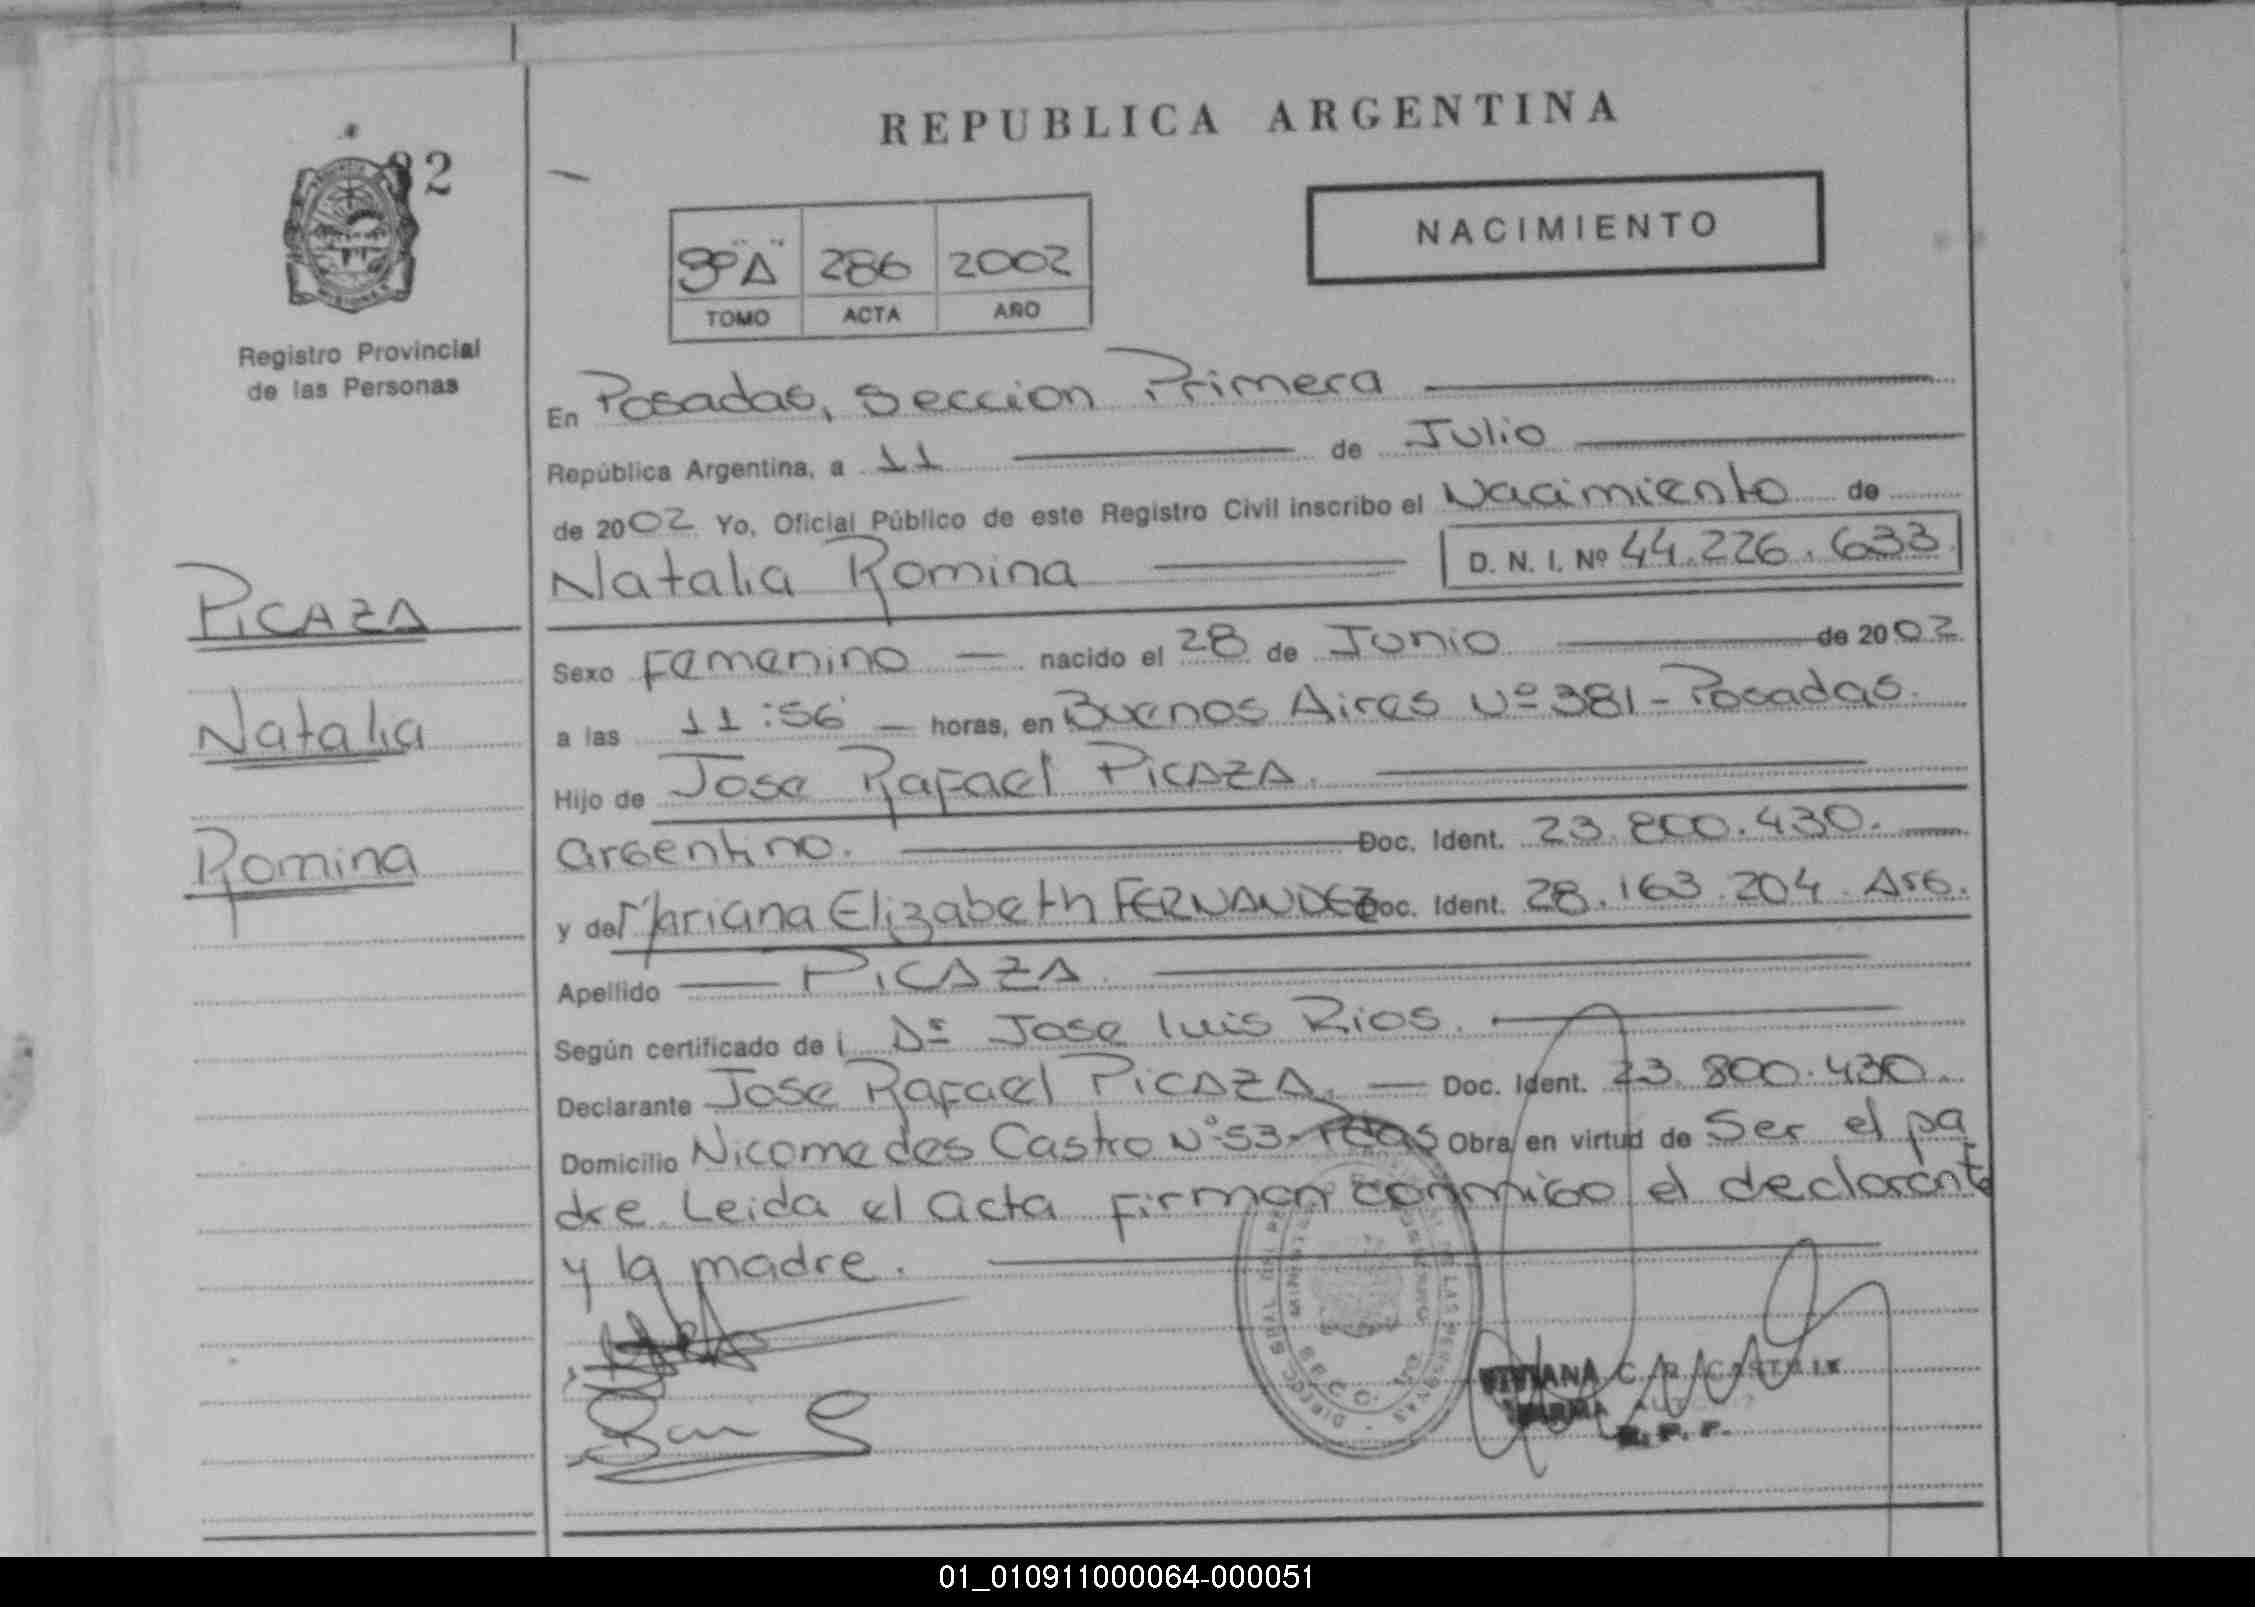 REPUBLICA ARGENTINA
82
NACIMIENTO
3º "A" 286 2002
TOMO ACTA AÑO
Registro Provincial
de las Personas
En Posadas, Seccion Primera
República Argentina, a 11 de Julio
de 2002 Yo, Oficial Público de este Registro Civil inscribo el Nacimiento de
Natalia Romina D. N. I. Nº 44.226.633
PICAZA
Natalia
Romina
Sexo Femenino — nacido el 28 de Junio de 2002
a las 11:56 — horas, en Buenos Aires Nº 381 - Posadas.
Hijo de Jose Rafael PICAZA.
argentino. Doc. Ident. 23.800.430.
y de Mariana Elizabeth FERNANDEZ Doc. Ident. 28.163.204 Arg.
Apellido — PICAZA.
Según certificado de Jose Luis Rios.
Declarante Jose Rafael PICAZA. — Doc. Ident. 23.800.430.
Domicilio Nicomedes Castro Nº 53 - Pdas Obra en virtud de Ser el pa
dre Leida el acta firman conmigo el declarante
y la madre.
R.P.P.
01_010911000064-000051